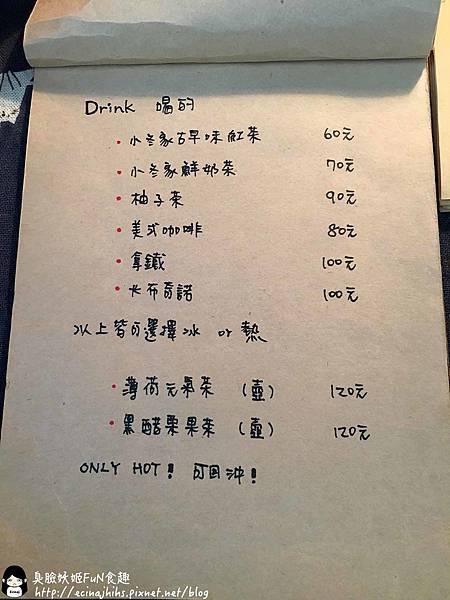 Drink 喝的
小冬家古早味紅茶 60元
小冬家鮮奶茶 70元
柚子茶 90元
美式咖啡 80元
拿鐵 100元
卡布奇諾 100元
以上皆可選擇冰 or 熱
薄荷元氣茶 (壺) 120元
黑醋栗果茶 (壺) 120元
ONLY HOT! 可回沖!
臭臉妖姬FuN食趣
http://ecinajhihs.pixnet.net/blog